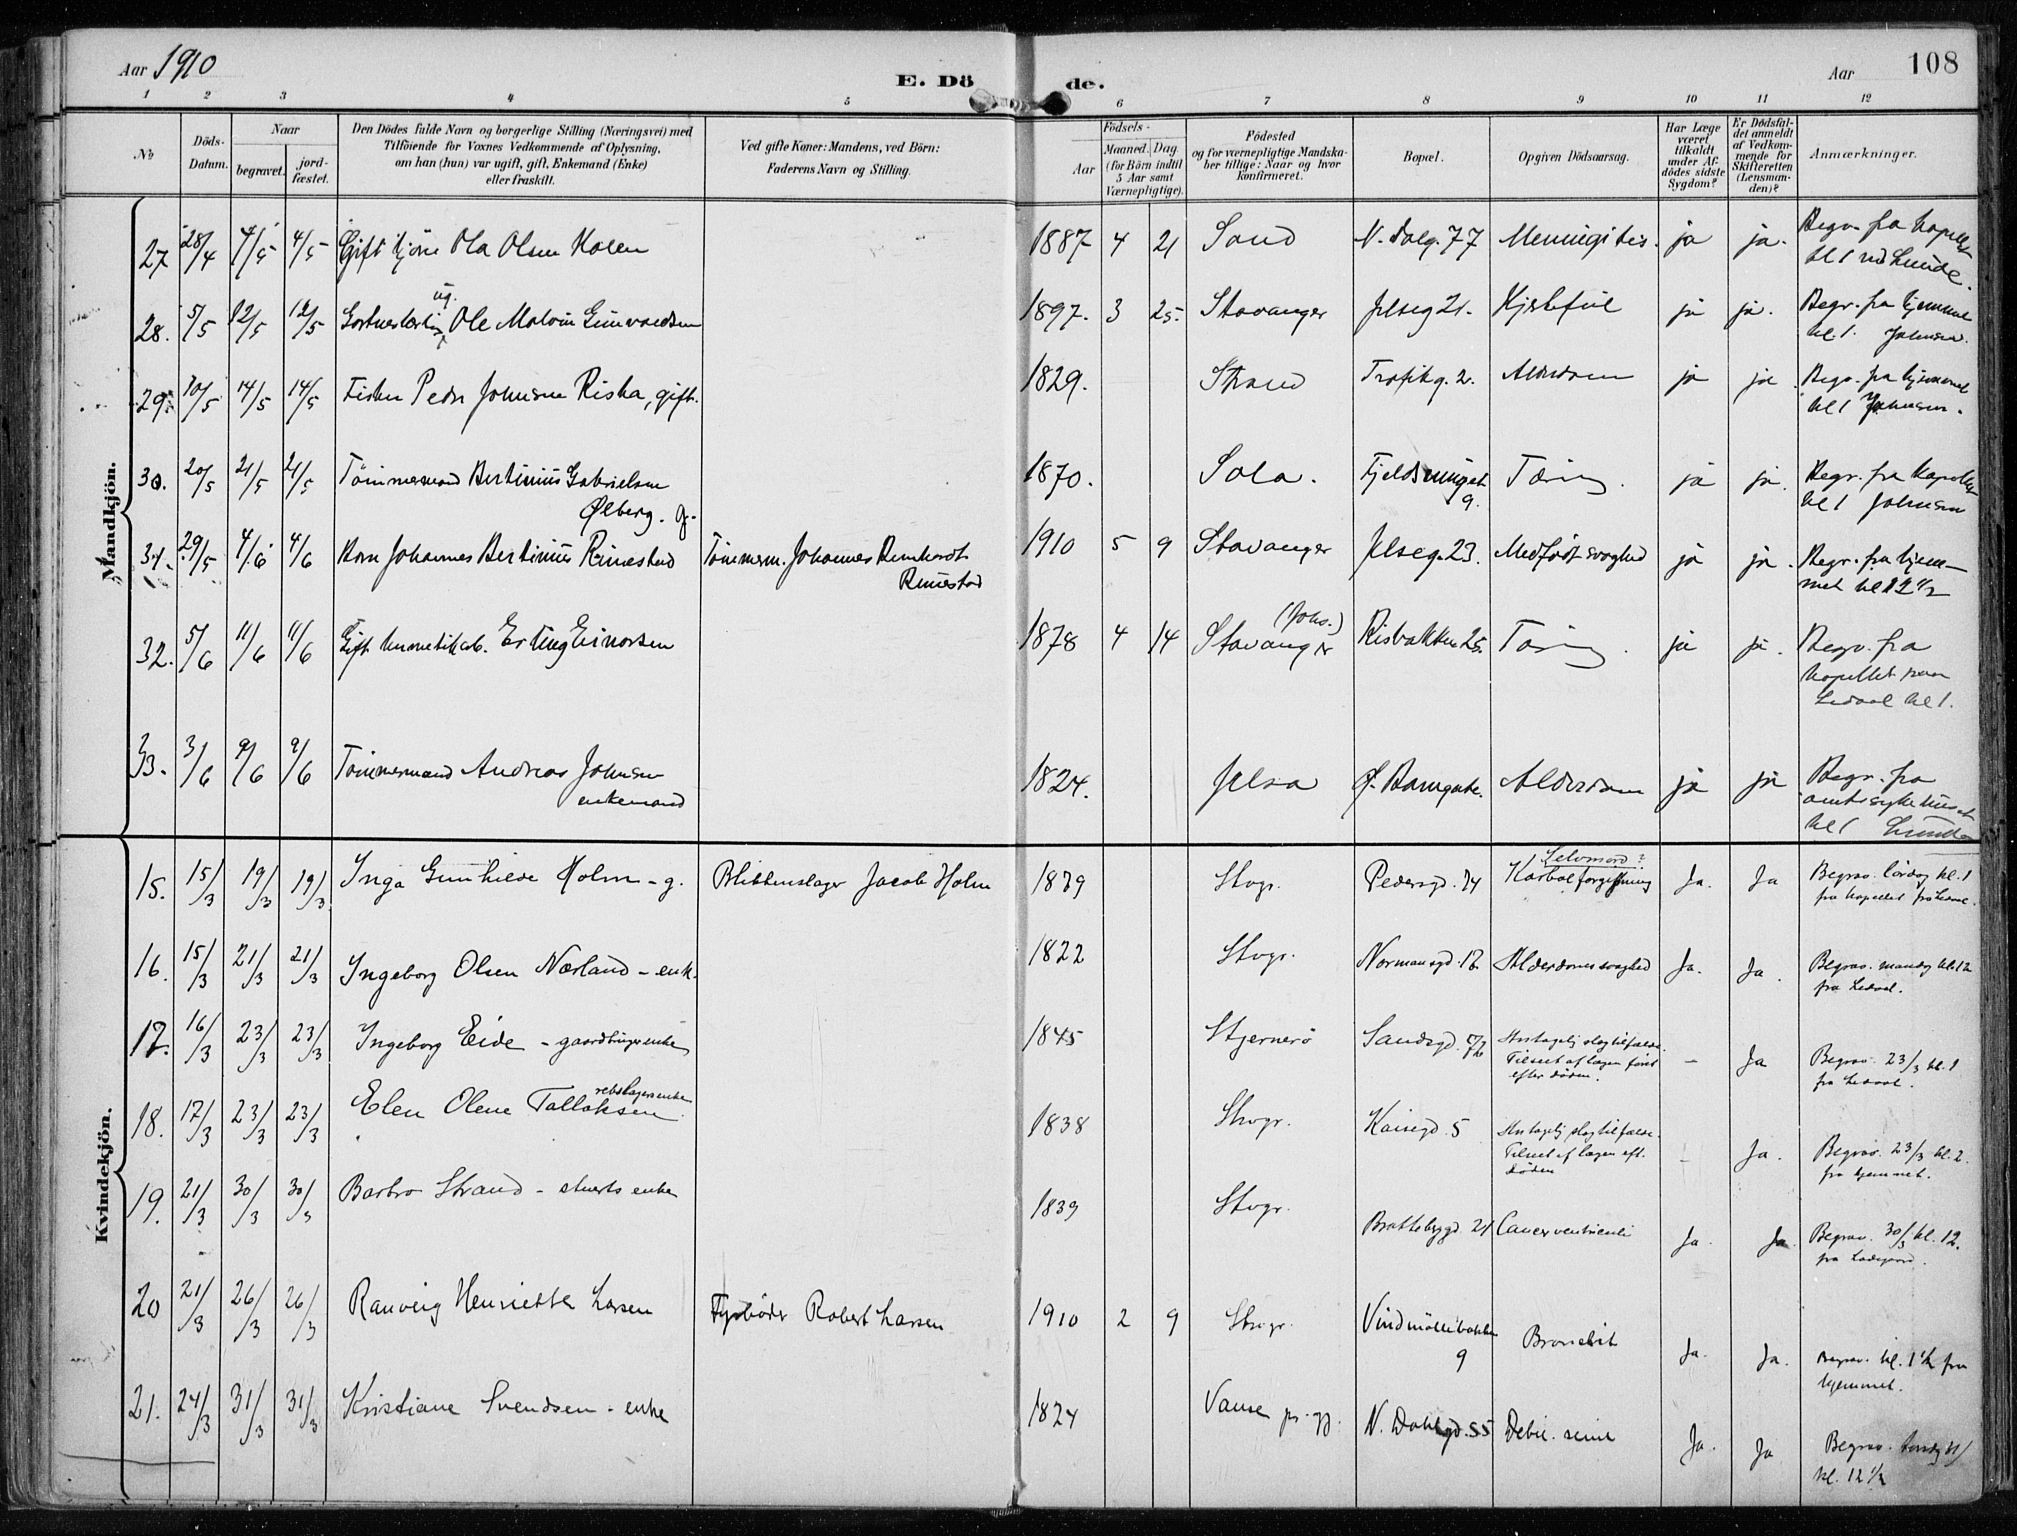 Aar 1910
E. Döde.
Aar
108
1 2 3 4 5 6 7 8 9 10 11 12
No
Döds-Datum.
Naar
begravet.
jordfæstet.
Den Dödes fulde Navn og borgerlige Stilling (Næringsvei) med
Tilföiende for Voxnes Vedkommende af Oplysning,
om han (hun) var ugift, gift, Enkemand (Enke)
eller fraskilt.
Ved gifte Koner: Mandens, ved Börn:
Faderens Navn og Stilling.
Födsels-
Aar
Maaned. Dag.
(for Börn indtil
5 Aar samt
Værnepligtige).
Födested
og for værnepligtige Mandska-
ber tillige: Naar og hvor
konfirmeret.
Bopæl.
Opgiven Dödsaarsag.
Har Læge
været
tilkaldt
under Af-
dödes sidste
Sygdom?
Er Dödsfal-
det anmeldt
af Vedkom-
mende for
Skifteretten
(Lensman-
den)?
Anmærkninger.
Mandkjön.
27. 28/4 4/5 4/5 Gift Ola Olsen 1887 4 21 Sand N. Dalg. 77 Meningites. ja ja. Begr. fra kapellet
kl 1 ved Lunde.
ug.
28. 5/5 12/5 12/5 Ole Malvin Gunvaldsen 1897. 3 25. Stavanger Jelseg 21. Hjertefeil ja ja. Begr. fra hjemmet
kl 1. Johnsen.
29. 10/5 14/5 14/5 Fisker Peder Johnsen Riska, gift. 1829. Strand Trafikg. 2. Alderdom ja ja. Begr. fra hjemmet
kl 1 Johnsen.
30. 20/5 21/5 21/5 Tømmermand Bertinius Gabrielsen
Ølberg. g. 1870. Sola. Fjeldsmuget
9. Tæring ja ja. Begr. fra kapellet
kl 1 Johnsen
31. 29/5 4/6 4/6 Barn Johannes Bertinius Rennestad Tømmerm. Johannes Reinhardt
Rennestad 1910 5 9 Stavanger Jelseg. 23. Medfødt svaghed ja ja. Begr. fra hjem-
met kl 12 1/2
32. 5/6 11/6 11/6 Gift hermetikarb. Erling Einarsen 1878 4 14 (Johs.)
Stavanger Risbakken 25. Tæring ja ja. Begr. fra
kapellet paa
Ledaal kl 1.
33. 3/6 9/6 9/6 Tømmermand Andreas Johnsen
enkemand 1824. Jelsa Ø. Banegate. Alderdom ja ja Begr. fra
amtssykehuset
kl 1 Lunde
Kvindekjön.
15. 15/3 19/3 19/3 Inga Gunhilde Holm - g. Blikkenslager Jacob Holm 1879 Stvgr. Pedersgd. 74 Selvmord?
Karbolforgiftning Ja. Ja Begrav. lördag kl. 1
fra kapellet
16. 15/3 21/3 21/3 Ingeborg Olsen Nærland - enk. 1822 Stvgr. Normansgd. 12 Alderdomssvaghed Ja. Ja. Begrav. mandag kl. 12
fra Ledaal.
17. 16/3 23/3 23/3 Ingeborg Eide - gaardbrugerenke 1845 Stjernerö Sandsgd. Antagelig slagtilfælde.
Tilseet af lægen først
efter døden. - Ja Begrav. 23/3 kl. 1
fra Ledaal.
18. 17/3 23/3 23/3 Elen Olene Tallaksen rebslagerenke 1838 Stvgr. Kaisegd. 5 Antagelig slagtilfælde.
Tilseet af lægen eft.
døden - Ja. Begrav. 23/3 kl. 2
fra hjemmet.
19. 21/3 30/3 30/3 Barbro Strand - stuerts enke 1839 Stvgr. Brattebrygd. 21 Cancer ventriculi Ja. Ja. Begrav. 30/3 kl. 12.
fra Ladegaard.
20 21/3 26/3 26/3 Ranveig Henriette Larsen Fyrbøder Robert Larsen 1910 2 9 Stvgr. Vindmøllebakken
9 Bronchit Ja. Ja. Begrav. kl. 1 1/2 fra
hjemmet.
21. 24/3 31/3 31/3 Kristiane Svendsen - enke 1824 Vanse pr. gj. N. Dahlsgd. 55 Debil. senil Ja. Ja Begrav. torsdag
kl. 12 1/2